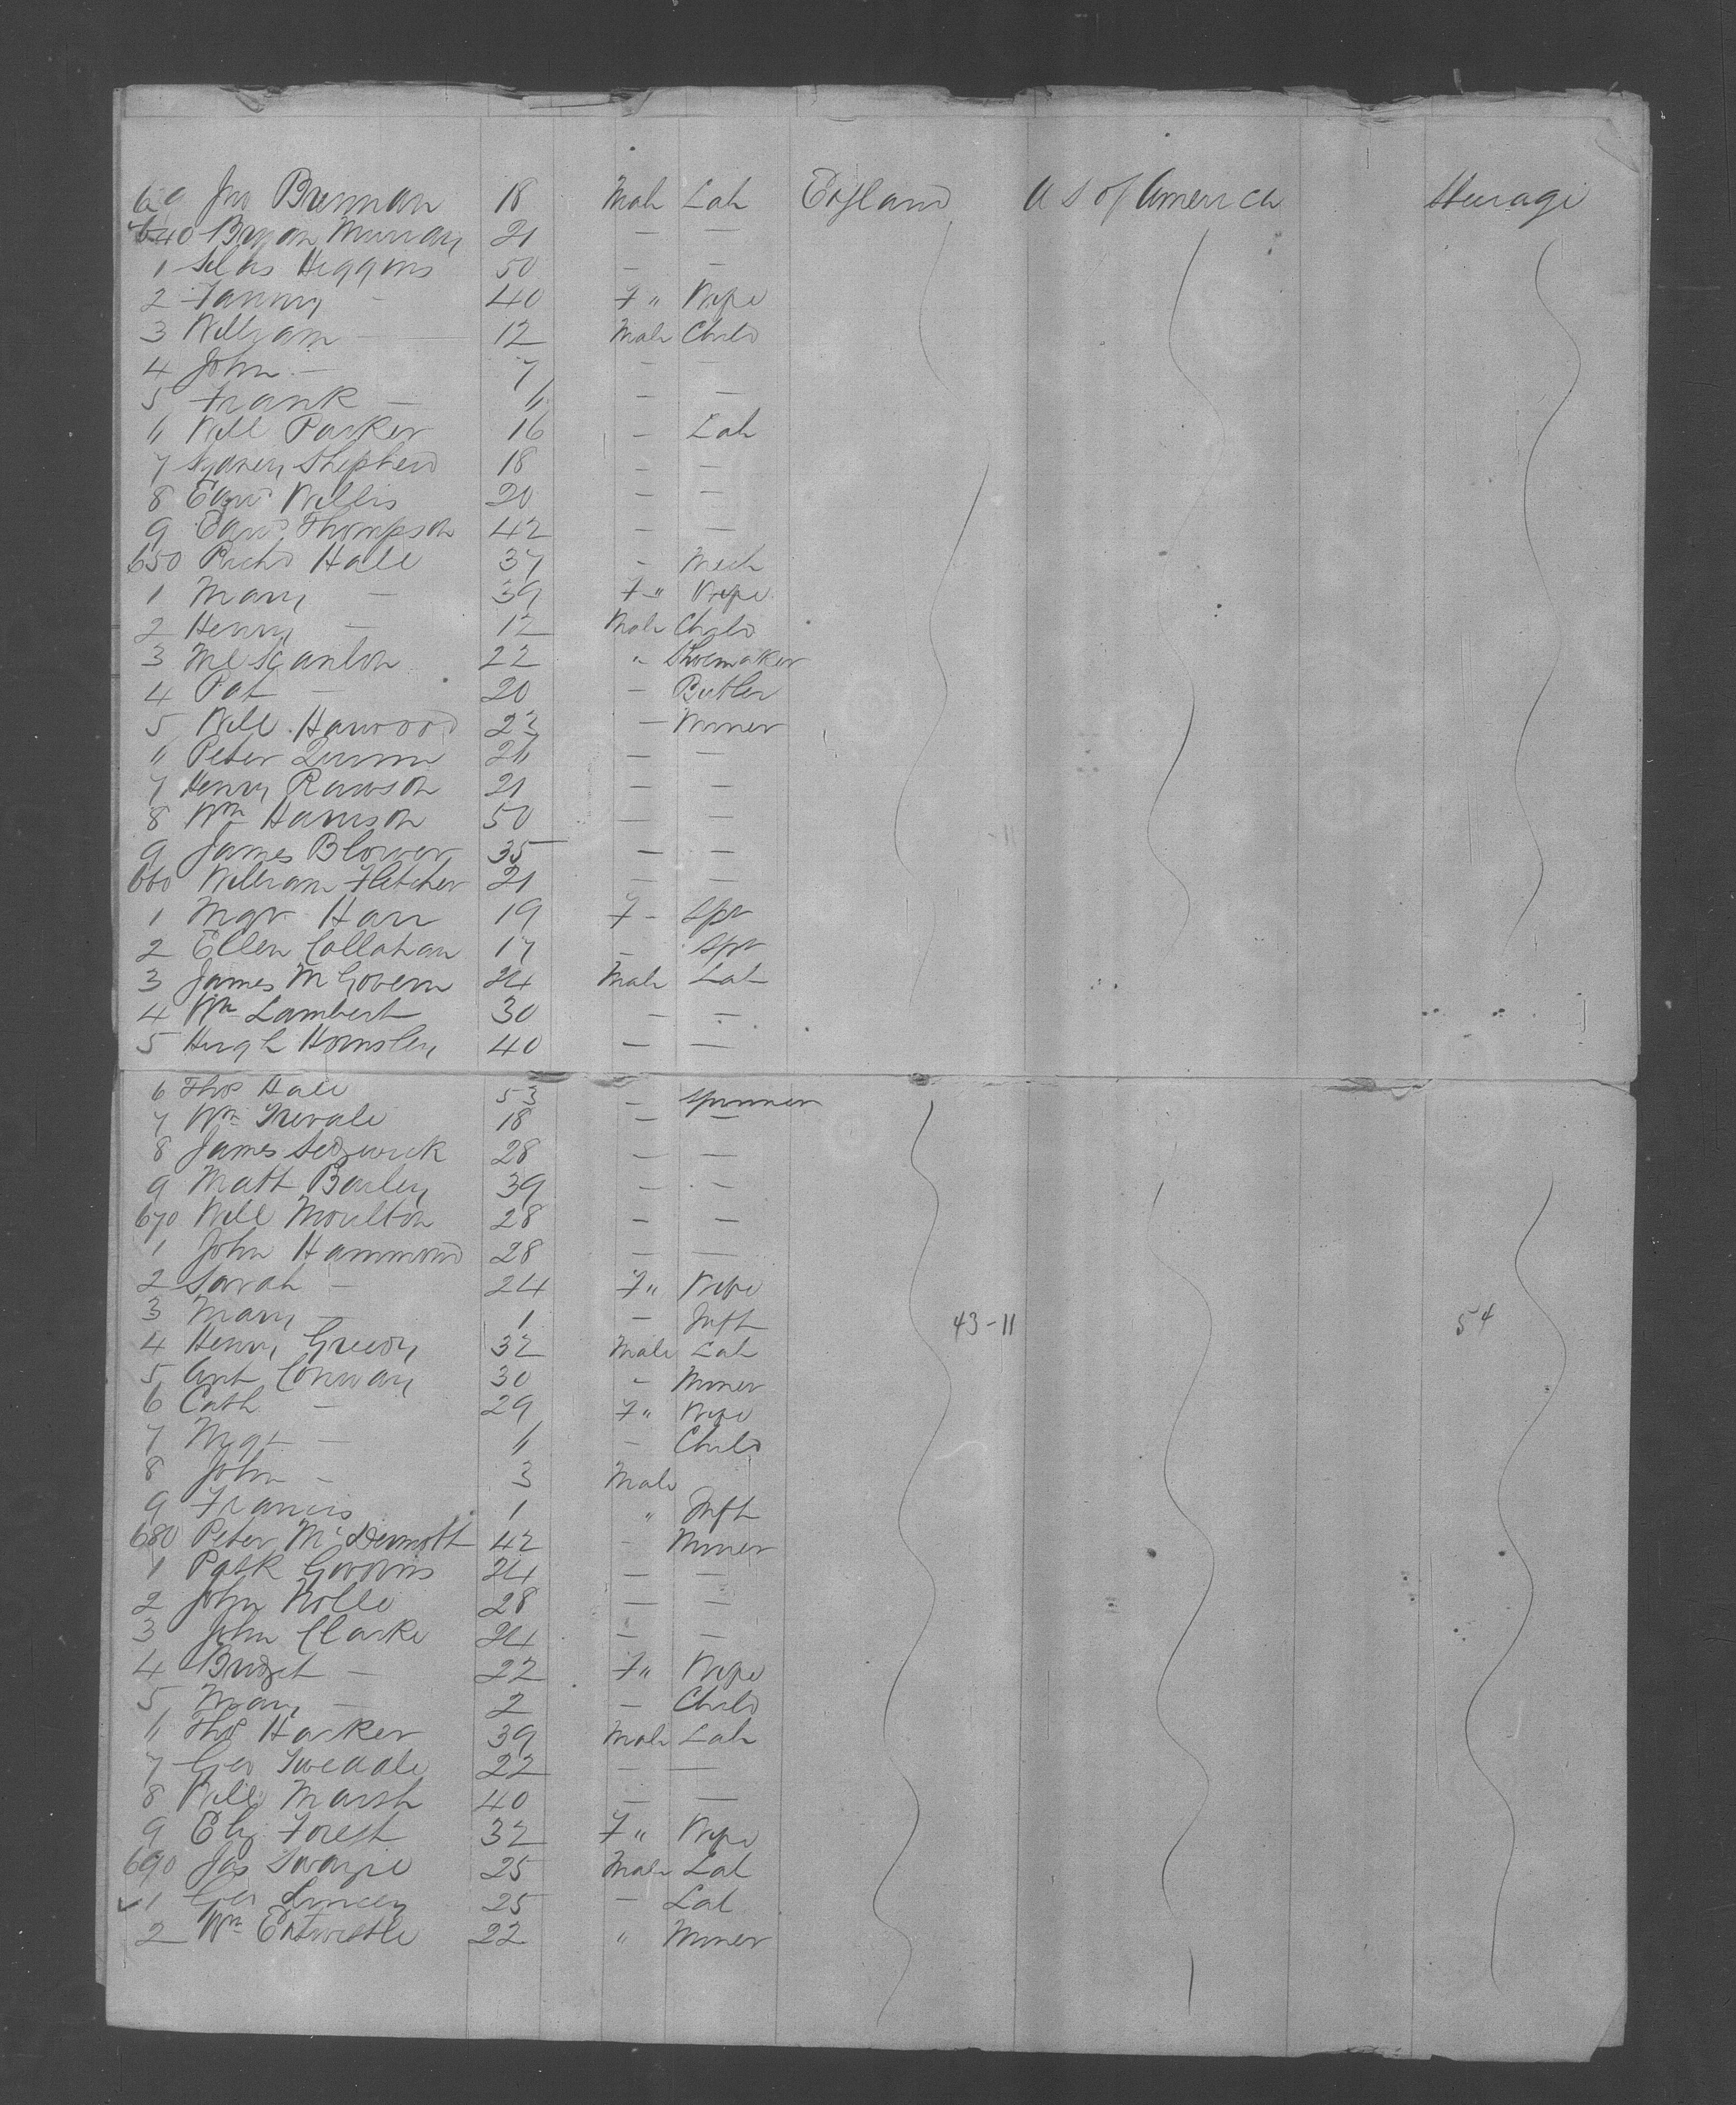 639 Jno Brennan 18 Male Lab England U S of America Steerage
640 Bryan Murray 21 — —
1 Silas Higgins 50 — —
2 Fanny - 40 F " Wife
3 William — 12 Male Child
4 John — 7 — —
5 Frank — 6 — —
6 Will Parker 16 — Lab
7 Sydney Shepherd 18 — —
8 Edwd Willis 20 — —
9 Edwd Thompson 42 — —
650 Richd Hall 37 - Mech
1 Mary — 39 F " Wife
2 Henry — 12 Male Child
3 Ml Scanlon 22 " Shoemaker
4 Pat — 20 — Butler
5 Will Harwood 23 — Miner
6 Peter Quinn 26 — —
7 Henry Rawson 21 — —
8 Wm Harrison 50 — —
9 James Blower 35 — —
660 William Fletcher 21 — —
1 Mgr Harr 19 F - Spr
2 Ellen Callahan 17 — Spr
3 James McGovern 24 Male Lab
4 Wm Lambert 30 — —
5 Hugh Hornsley 40 — —
6 Thos Hall 53 — Spinner
7 Wm 18 — —
8 James Sedgwick 28 — —
9 Matt Barley 39 — —
670 Will Moulton 28 — —
1 John Hammond 28 — —
2 Sarah — 24 F " Wife
3 Mary — 1 — Inft 43-11 54
4 Henry 32 Male Lab
5 Ant Conway 30 - Miner
6 Cath — 29 F " Wife
7 Mgt — 6 — Child
8 John — 3 Male
9 Francis 1 " Inft
680 Peter McDermott 42 - Miner
1 Patk 24 — —
2 John 28 — —
3 John Clarke 24 — —
4 Bridget — 22 F " Wife
5 Mary — 2 — Child
6 Thos Harker 39 Male Lab
7 Geo Twedale 22 — —
8 Will Marsh 40 — —
9 Eliz Forest 32 F " Wife
690 Jas 25 Male Lab
✓1 Geo 25 — Lab
2 Wm Entwistle 22 " Miner